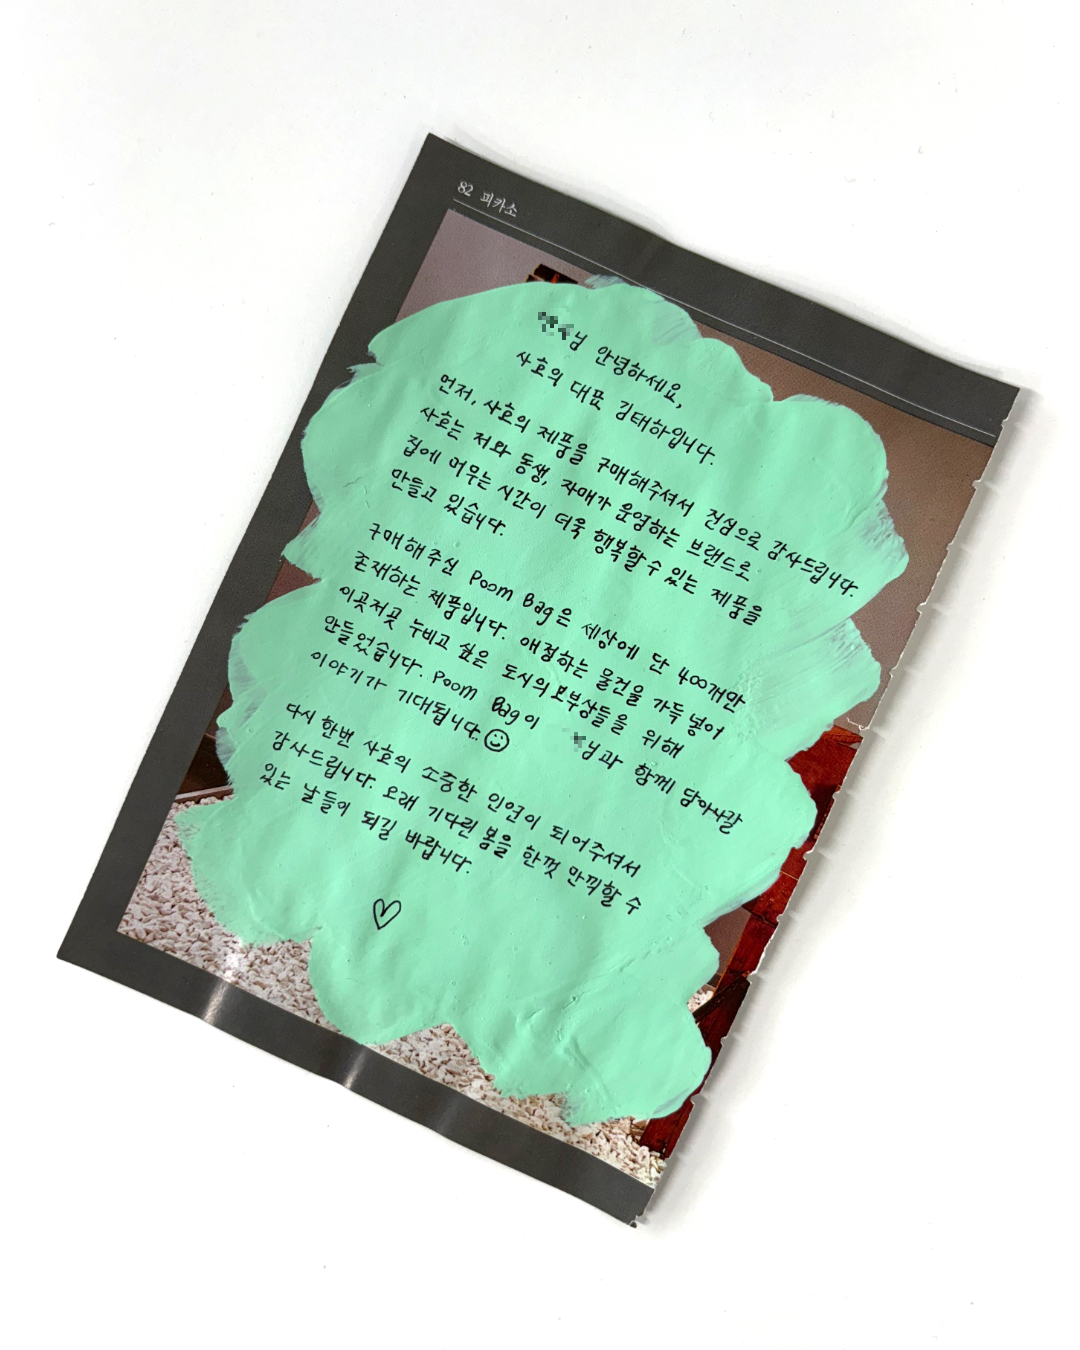 82 피카소
님 안녕하세요,
사효의 대표 김태하입니다.
먼저, 사효의 제품을 구매해주셔서 진심으로 감사드립니다.
사효는 저와 동생, 자매가 운영하는 브랜드로
집에 머무는 시간이 더욱 행복할 수 있는 제품을
만들고 있습니다.
구매해주신 Poom Bag은 세상에 단 400개만
존재하는 제품입니다. 애정하는 물건을 가득 넣어
이곳저곳 누비고 싶은 도시의 보부상들을 위해
만들었습니다. Poom Bag이 님과 함께 담아나갈
이야기가 기대됩니다.
다시 한번 사효의 소중한 인연이 되어주셔서
감사드립니다. 오래 기다린 봄을 한껏 만끽할 수
있는 날들이 되길 바랍니다.